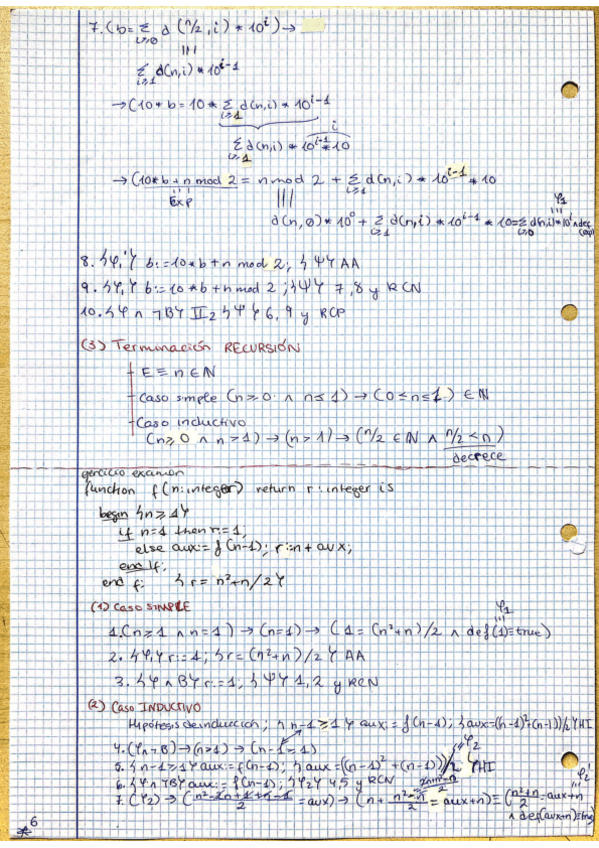 7. (b = Σ i≥0 d(n/2, i) * 10^i) →
|||
Σ i≥1 d(n,i) * 10^i-1
→ (10 * b = 10 * Σ i≥1 d(n,i) * 10^i-1
Σ i≥1 d(n,i) * 10^i-1 * 10
i
→ (10 * b + n mod 2 = n mod 2 + Σ i≥1 d(n,i) * 10^i-1 * 10
Exp
|||
φ1
d(n,0) * 10^0 + Σ i≥1 d(n,i) * 10^i-1 * 10 = Σ i≥0 d(n,i) * 10^i ∧ def (exp)
8. {φ1'} b := 10 * b + n mod 2; {ψ} AA
9. {φ1} b := 10 * b + n mod 2; {ψ} 7, 8 y RCN
10. {φ ∧ ¬B} II2 {ψ} 6, 9 y RCP
(3) Terminación RECURSIÓN
E ≡ n ∈ ℕ
Caso simple (n ≥ 0 ∧ n ≤ 1) → (0 ≤ n ≤ 1) ∈ ℕ
Caso inductivo
(n ≥ 0 ∧ n > 1) → (n > 1) → (n/2 ∈ ℕ ∧ n/2 < n)
decrece
ejercicio examen
function f (n: integer) return r: integer is
begin {n ≥ 1}
if n=1 then r:=1;
else aux:= f(n-1); r:=n + aux;
end if;
end f; {r = n²+n/2}
(1) CASO SIMPLE
φ1
1. (n ≥ 1 ∧ n=1) → (n=1) → (1 = (n²+n)/2 ∧ def(1)≡true)
2. {φ1} r:=1; {r = (n²+n)/2} AA
3. {φ ∧ B} r:=1; {ψ} 1, 2 y RCN
(2) Caso INDUCTIVO
Hipótesis de inducción; {n-1 ≥ 1} aux := f(n-1); {aux = ((n-1)²+(n-1))/2} HI
4. (φ ∧ ¬B) → (n>1) → (n-1 ≥ 1)
φ2
5. {n-1 ≥ 1} aux := f(n-1); {aux = ((n-1)² + (n-1))/2} HI
6. {φ ∧ ¬B} aux := f(n-1); {φ2} 4, 5 y RCN
φ2'
7. (φ2) → (n²-2n+1+n-1 / 2 = aux) → (n + n²-n / 2 = aux+n) ≡ (n²+n / 2 = aux+n
∧ def(aux+n)≡true)
6
*